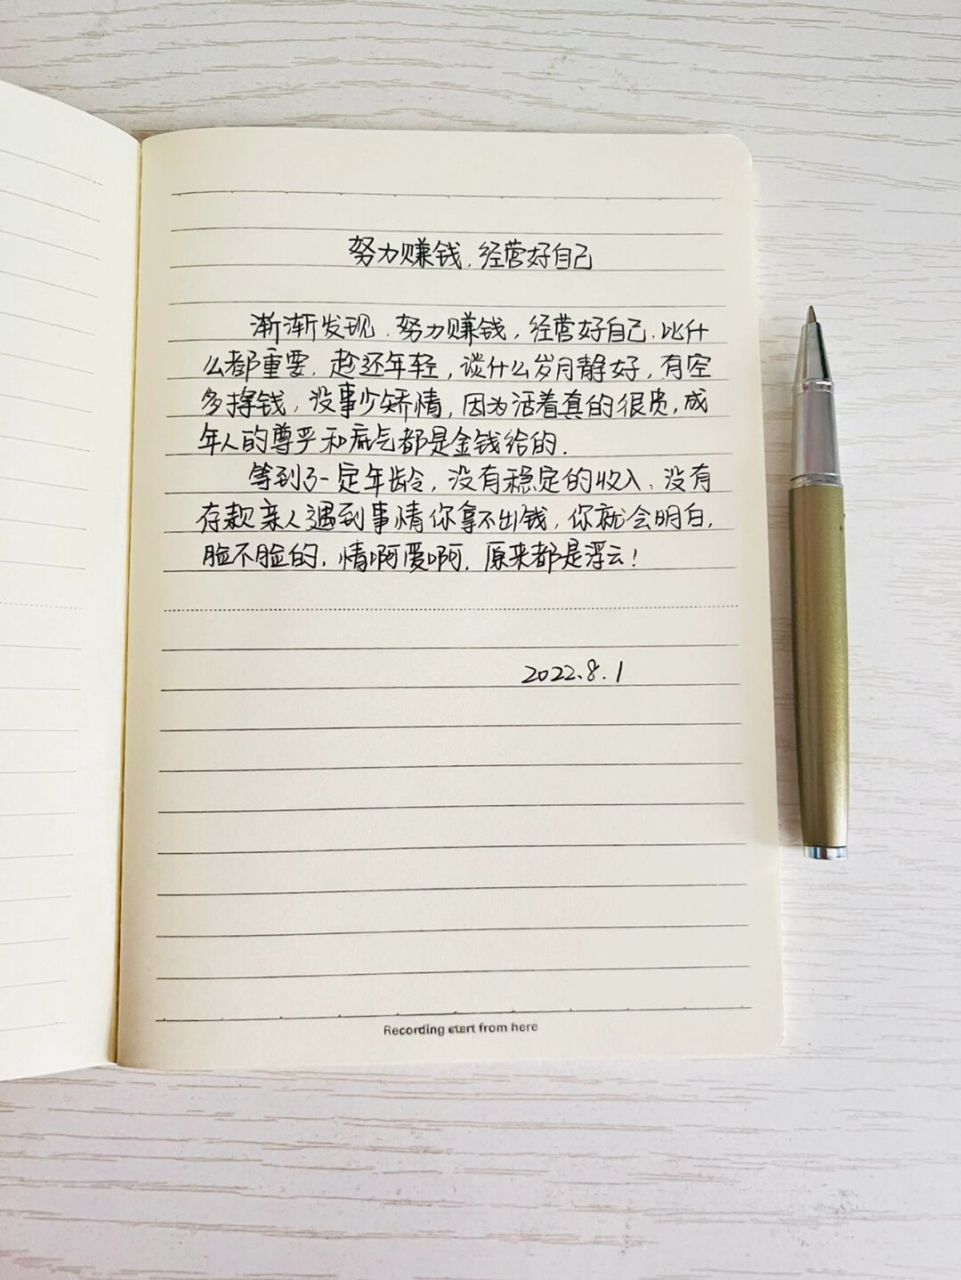 努力赚钱，经营好自己
渐渐发现，努力赚钱，经营好自己，比什
么都重要，趁还年轻，谈什么岁月静好，有空
多挣钱，没事少矫情，因为活着真的很贵，成
年人的尊乎和底气都是金钱给的．
等到了一定年龄，没有稳定的收入、没有
存款亲人遇到事情你拿不出钱，你就会明白，
脸不脸的，情啊爱啊，原来都是浮云！
2022.8.1
Recording start from here